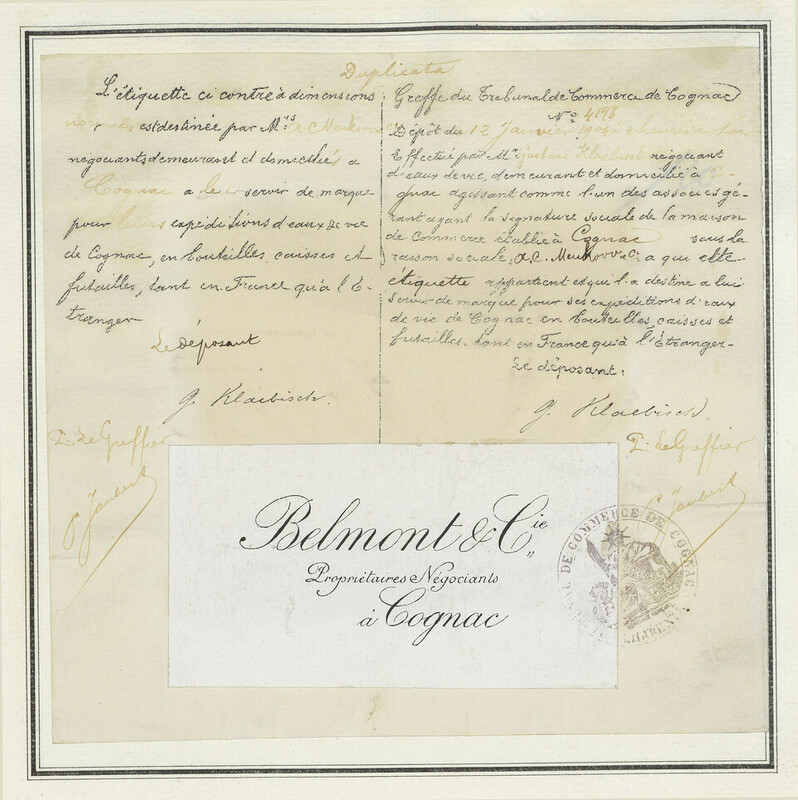 Duplicata
L'étiquette ci contre à dimensions
normales est destinée par M.rs A.C. Meukow
négociants demeurant et domiciliés à
Cognac a leur servir de marque
pour leurs expéditions d'eaux de vie
de Cognac, en bouteilles, caisses et
futailles, tant en France qu'à l'E-
tranger
Le déposant
G. Klaebisch.
P. Le Greffier
P. Jaubert
Greffe du Tribunal de Commerce de Cognac
N° 4198
Dépôt du 12 Janvier
Effectué par Mr Gustave Klaebisch négociant
d'eaux de vie, demeurant et domicilié à Co-
gnac agissant comme l'un des associés gé-
rant ayant la signature sociale de la maison
de Commerce établie à Cognac sous la
raison sociale A.C. Meukow & Co a qui cette
étiquette appartient et qui l'a destine a lui
servir de marque pour ses expéditions d'eaux
de vie de Cognac en bouteilles, caisses et
futailles, tant en France qu'à l'Étranger-
Le déposant:
G. Klaebisch.
P. Le Greffier
P. Jaubert
Belmont & Cie
Propriétaires Négociants
à Cognac
DE COMMERCE DE COGNAC